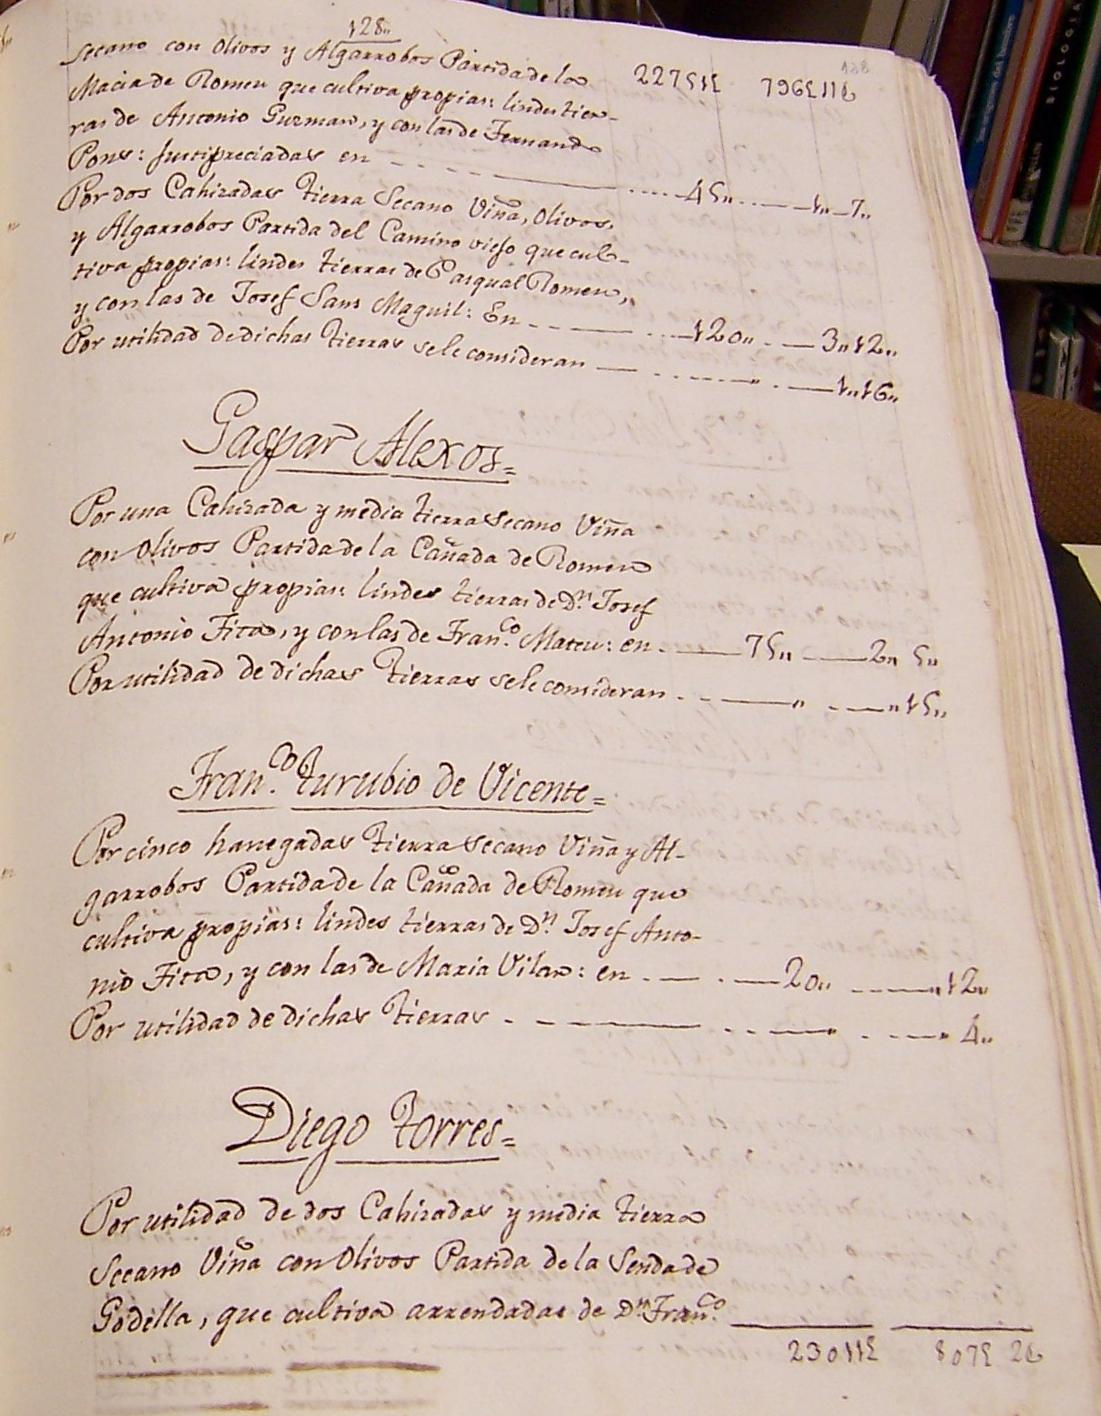 128"
128
secano con Olivos y Algarrobos Partida de la
Macia de Romeu que cultiva propias: lindes tier-
ras de Antonio Guzman, y con las de Fernando
Pons: Justipreciadas en 45" 1" 7"
Por dos Cahizadas tierra Secano Viña, Olivos,
y Algarrobos Partida del Camino viejo que cul-
tiva propias: lindes tierras de Pasqual Romeu,
y con las de Josef Sans Maguil: En 120" 3" 12"
Por utilidad de dichas tierras sele consideran " 1" 16"
Gaspar Alexos=
Por una Cahizada y media tierra secano Viña
con Olivos Partida de la Cañada de Romeu
que cultiva propias: lindes tierras de Dn. Josef
Antonio Fita, y con las de Franco. Mateu: en 75" 2" 5"
Por utilidad de dichas tierras sele consideran " " 15"
Franco. Turubio de Vicente=
Por cinco hanegadas tierra secano Viña y Al-
garrobos Partida de la Cañada de Romeu que
cultiva propias: lindes tierras de Dn. Josef Anto-
nio Fita, y con las de Maria Vilar: en 20" " 12"
Por utilidad de dichas tierras " " 4"
Diego Torres=
Por utilidad de dos Cahizadas y media tierra
Secano Viña con Olivos Partida de la Senda de
Godella, que cultiva arrendadas de Dn. Franco.